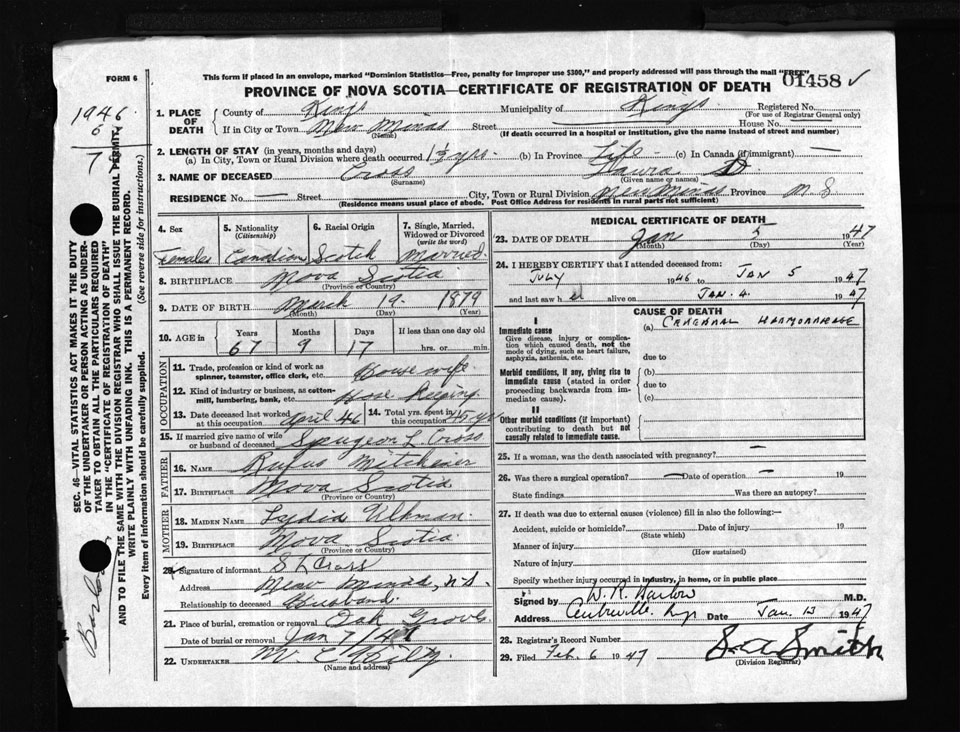 FORM 6
This form if placed in an envelope, marked "Dominion Statistics—Free, penalty for improper use $300," and properly addressed will pass through the mail "FREE"
01458 ✓
PROVINCE OF NOVA SCOTIA—CERTIFICATE OF REGISTRATION OF DEATH
1946
6
7
SEC. 46—VITAL STATISTICS ACT MAKES IT THE DUTY
OF THE UNDERTAKER OR PERSON ACTING AS UNDER-
TAKER TO OBTAIN ALL THE PARTICULARS REQUIRED
IN THE "CERTIFICATE OF REGISTRATION OF DEATH"
AND TO FILE THE SAME WITH THE DIVISION REGISTRAR WHO SHALL ISSUE THE BURIAL PERMIT.
WRITE PLAINLY WITH UNFADING INK. THIS IS A PERMANENT RECORD.
Every item of information should be carefully supplied. (See reverse side for instructions.)
1. PLACE OF DEATH County of Kings Municipality of Kings Registered No.
(For use of Registrar General only)
If in City or Town New Minas Street House No. —
(Name) (If death occurred in a hospital or institution, give the name instead of street and number)
2. LENGTH OF STAY (in years, months and days)
(a) In City, Town or Rural Division where death occurred 1½ yrs. (b) In Province Life — (c) In Canada (if immigrant) —
3. NAME OF DECEASED Cross Laura D
(Surname) (Given name or names)
RESIDENCE No. — Street City, Town or Rural Division New Minas Province N S
(Residence means usual place of abode. Post Office Address for residents in rural parts not sufficient)
4. Sex 5. Nationality (Citizenship) 6. Racial Origin 7. Single, Married, Widowed or Divorced (write the word)
Female Canadian Scotch Married
8. BIRTHPLACE Nova Scotia
(Province or Country)
9. DATE OF BIRTH March 19 1879
(Month) (Day) (Year)
10. AGE in Years Months Days If less than one day old
67 9 17 hrs. or min.
OCCUPATION
11. Trade, profession or kind of work as spinner, teamster, office clerk, etc. House wife
12. Kind of industry or business, as cotton-mill, lumbering, bank, etc. House Keeping
13. Date deceased last worked at this occupation April 46 14. Total yrs. spent in this occupation 45 yrs
15. If married give name of wife or husband of deceased Spurgeon L. Cross
FATHER
16. NAME Rufus Mitchener
17. BIRTHPLACE Nova Scotia
(Province or Country)
MOTHER
18. MAIDEN NAME Lydia
19. BIRTHPLACE Nova Scotia
(Province or Country)
20. Signature of informant S L Cross
Address New Minas, N.S.
Relationship to deceased Husband
21. Place of burial, cremation or removal Oak Grove
Date of burial or removal Jan 7/47
22. UNDERTAKER
(Name and address)
MEDICAL CERTIFICATE OF DEATH
23. DATE OF DEATH Jan 5 1947
(Month) (Day) (Year)
24. I HEREBY CERTIFY that I attended deceased from:
JULY 1946 to JAN 5 1947
and last saw her alive on JAN. 4. 1947
CAUSE OF DEATH
I
Immediate cause (a)
Give disease, injury or complication which caused death, not the mode of dying, such as heart failure, asphyxia, asthenia, etc.
due to
Morbid conditions, if any, giving rise to immediate cause (stated in order proceeding backwards from immediate cause). (b)
due to
(c)
II
Other morbid conditions (if important) contributing to death but not causally related to immediate cause.
25. If a woman, was the death associated with pregnancy? —
26. Was there a surgical operation? — Date of operation — 19
State findings Was there an autopsy?
27. If death was due to external causes (violence) fill in also the following:—
Accident, suicide or homicide? Date of injury 19
(State which)
Manner of injury
(How sustained)
Nature of injury
Specify whether injury occurred in industry, in home, or in public place
Signed by W. R. Harlow M.D.
Address Centreville, Date Jan. 13 1947
28. Registrar's Record Number
29. Filed Feb. 6 1947 S. A. Smith
(Division Registrar)